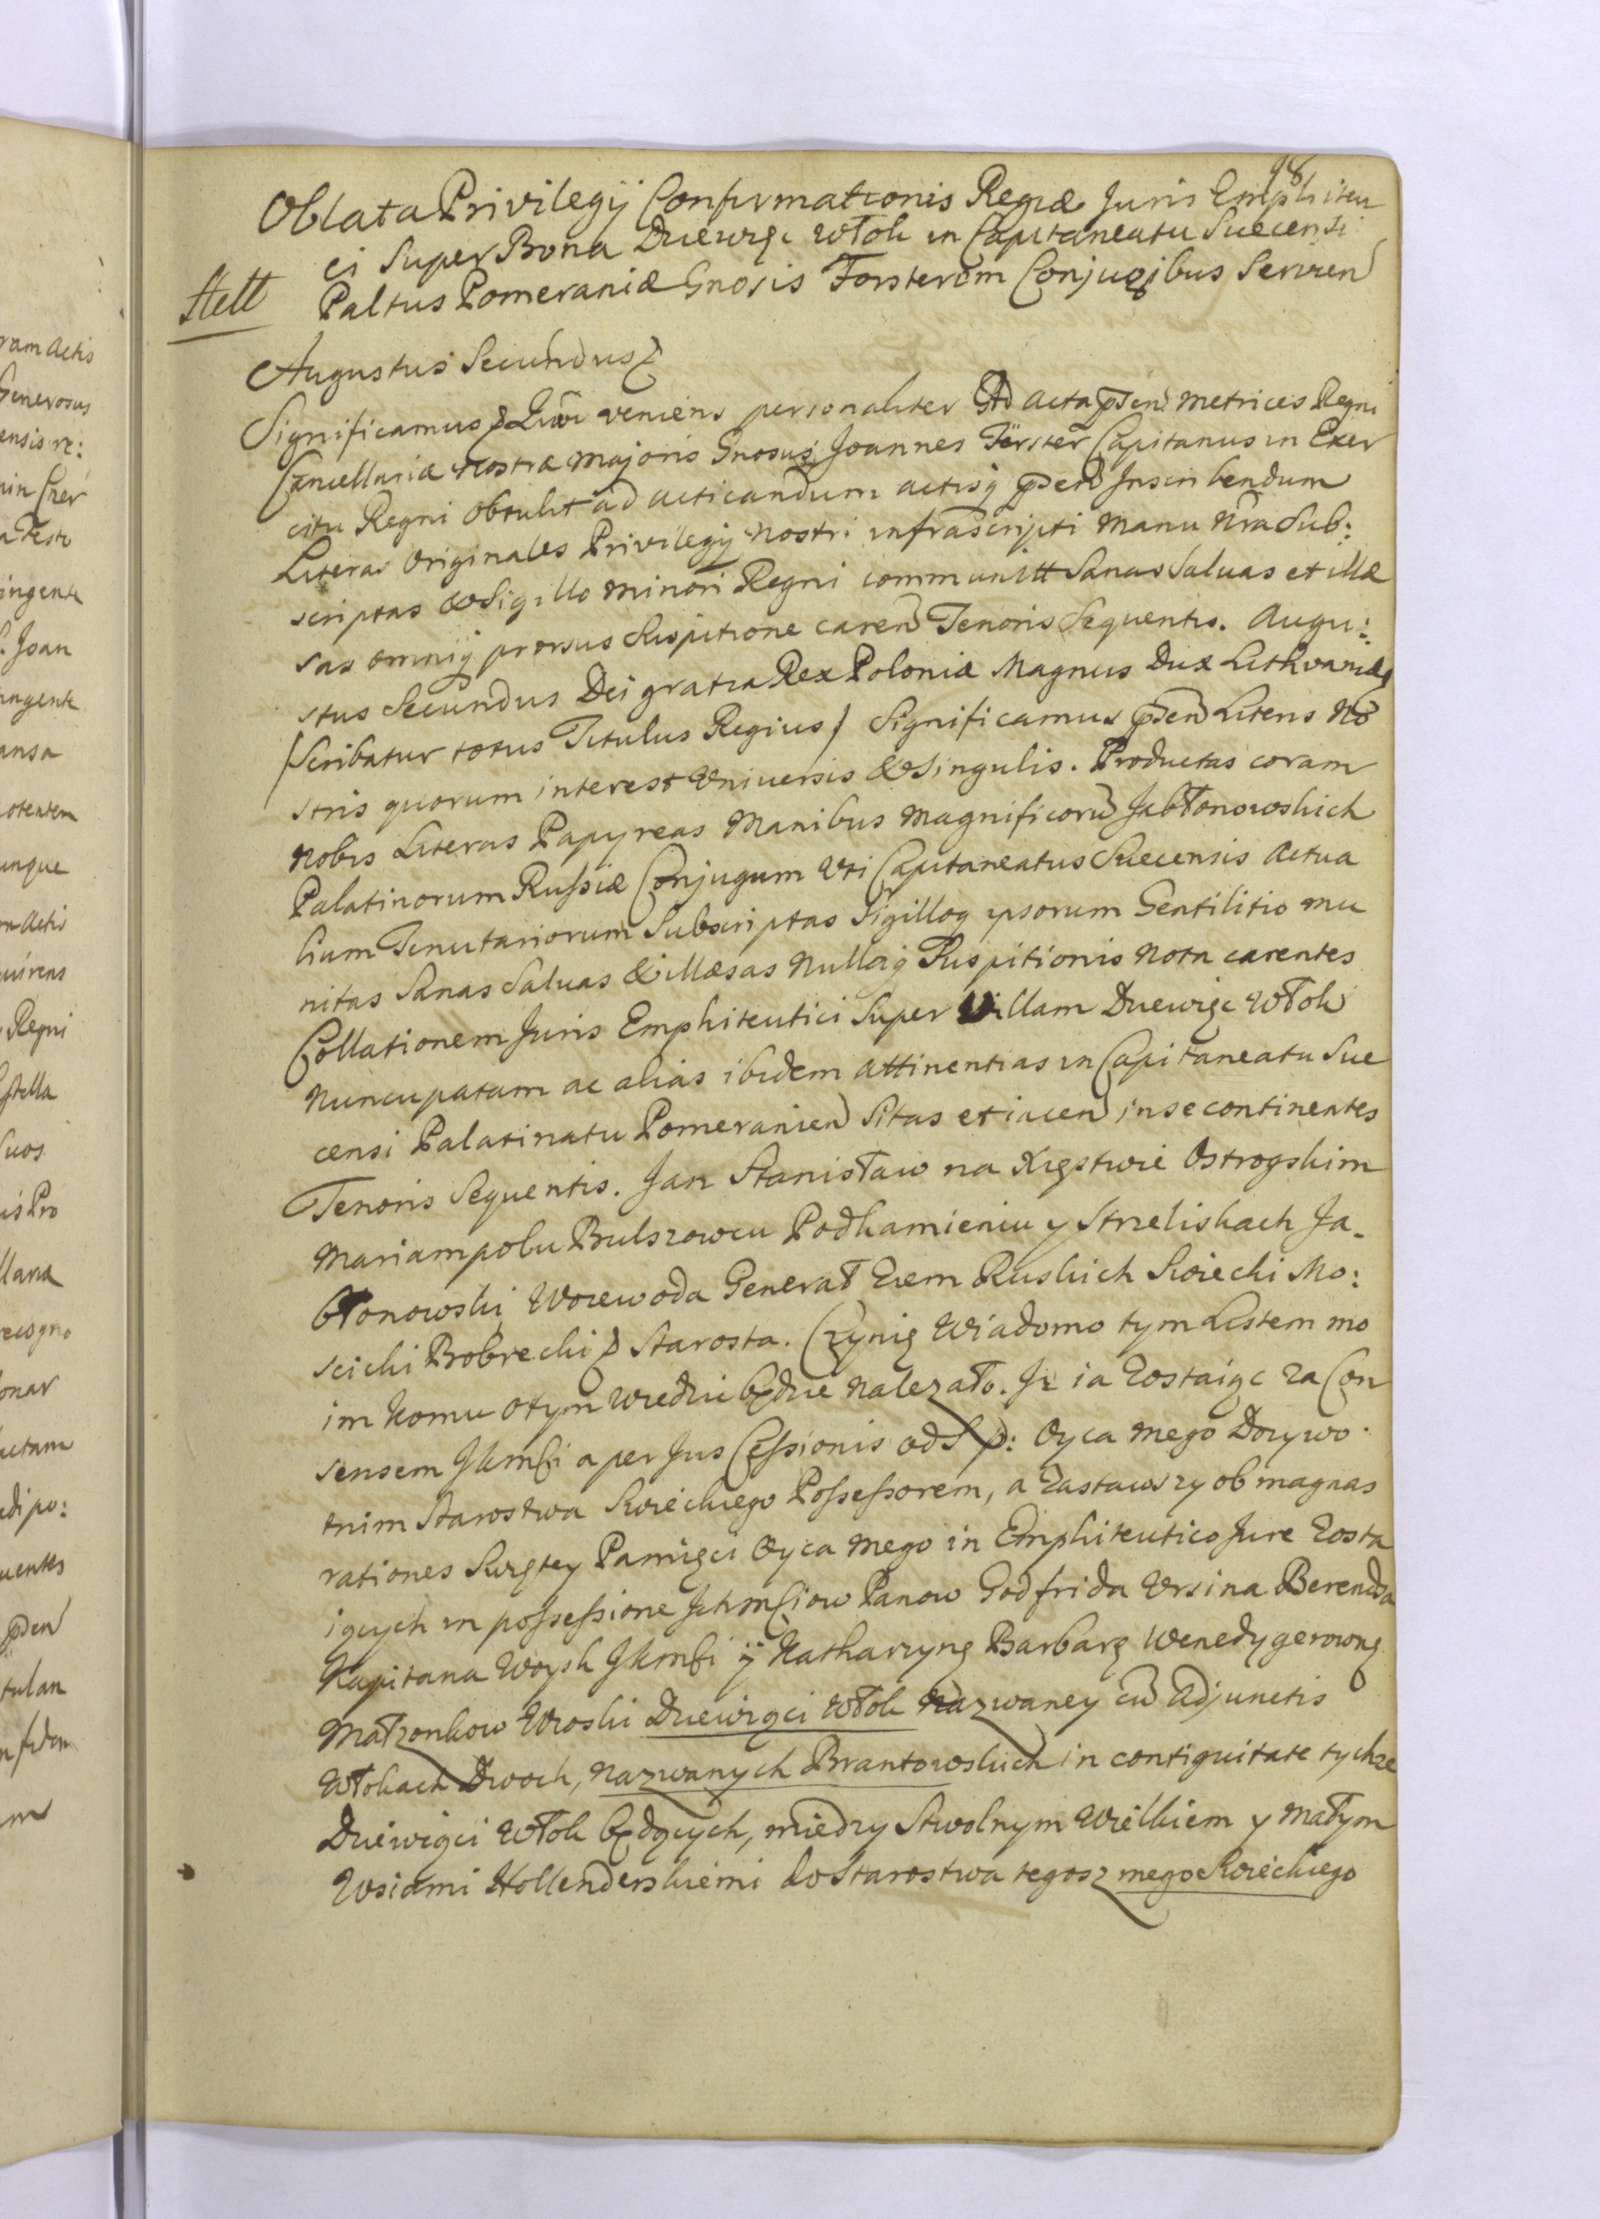 98
Oblata Privilegÿ Confirmationis Regiæ Juris Emphiteu
ci Super Bona Dziewięc Włok in Capitaneatu Suecensi
Stett
Paltus Pomeraniæ Gnosis Forsterom Conjugibus Servien
Augustus Secundus
Significamus Quia veniens personaliter Ad acta psen Metrices Regni
Cancellariæ Nostræ Majoris Gnosus Joannes Förster Capitanus in Exer
citu Regni obtulit ad acticandum actisq psen Inscribendum
Literas Originales Privilegÿ Nostri infrascripti Manu Nra Sub:
scriptas & Sigillo Minori Regni communitt Sanas Saluas et illæ
sas omniq prorsus Suspitione caren Tenoris Sequentis. Augu:
stus Secundus Dei gratia Rex Poloniæ Magnus Dux Lithvaniæ
/Scribatur totus Titulus Regius/ Significamus psen Literis No
stris quorum interest Vniuersis & Singulis. Productas coram
Nobis Literas Papyreas Manibus Magnificorum Jabłonowskich
Palatinorum Russiæ Conjugum Vti Capitaneatus Suecensis Actua
lium Tenutariorum Subscriptas Sigilloq ipsorum Gentilitio mu
nitas Sanas Saluas & illæsas Nullaq Suspitionis Nota carentes
Collationem Juris Emphiteutici Super Villam Dziewięc Włok
Nuncupatam ac alias ibidem attinentias in Capitaneatu Sue
censi Palatinatu Pomeranien Sitas et iacen in se continentes
Tenoris Sequentis. Jan Stanisław na Xięstwie Ostrogskim
Mariampolu Bulszowcu Podkamieniu y Strzeliskach Ja-
błonowski Woiewoda Generał Ziem Ruskich Swiecki Mo:
scicki Bobrecki Starosta. Czynię Wiadomo tym Listem mo
im komu o tym wiedzieć będzie Nalezało. Iz ia Zostaiąc za Con
sensem JKMsci a per Jus Cessionis od S p: Oyca mego Dozywo
tnim Starostwa Swieckiego Possessorem, a Zastawszy ob magnas
rationes Swiętey Pamięci Oyca mego in Emphiteutico Jure Zosta
iących in possessione Ichmsciow Panow Godfrida Vrsina Berendza
Kapitana Woysk JKMsci ÿ Katharzynę Barbarę Wenedygerownę
Małzonkow Wioski Dziewięci Włok Nazwaney cum Adjunctis
Włokach Dwoch, Nazwanych Brantowskich in contiguitate tychze
Dziewięci Włok będących, miedzy Stwolnym Wielkiem y Małym
Wsiami Hollenderskiemi do Starostwa tegosz mego Swieckiego